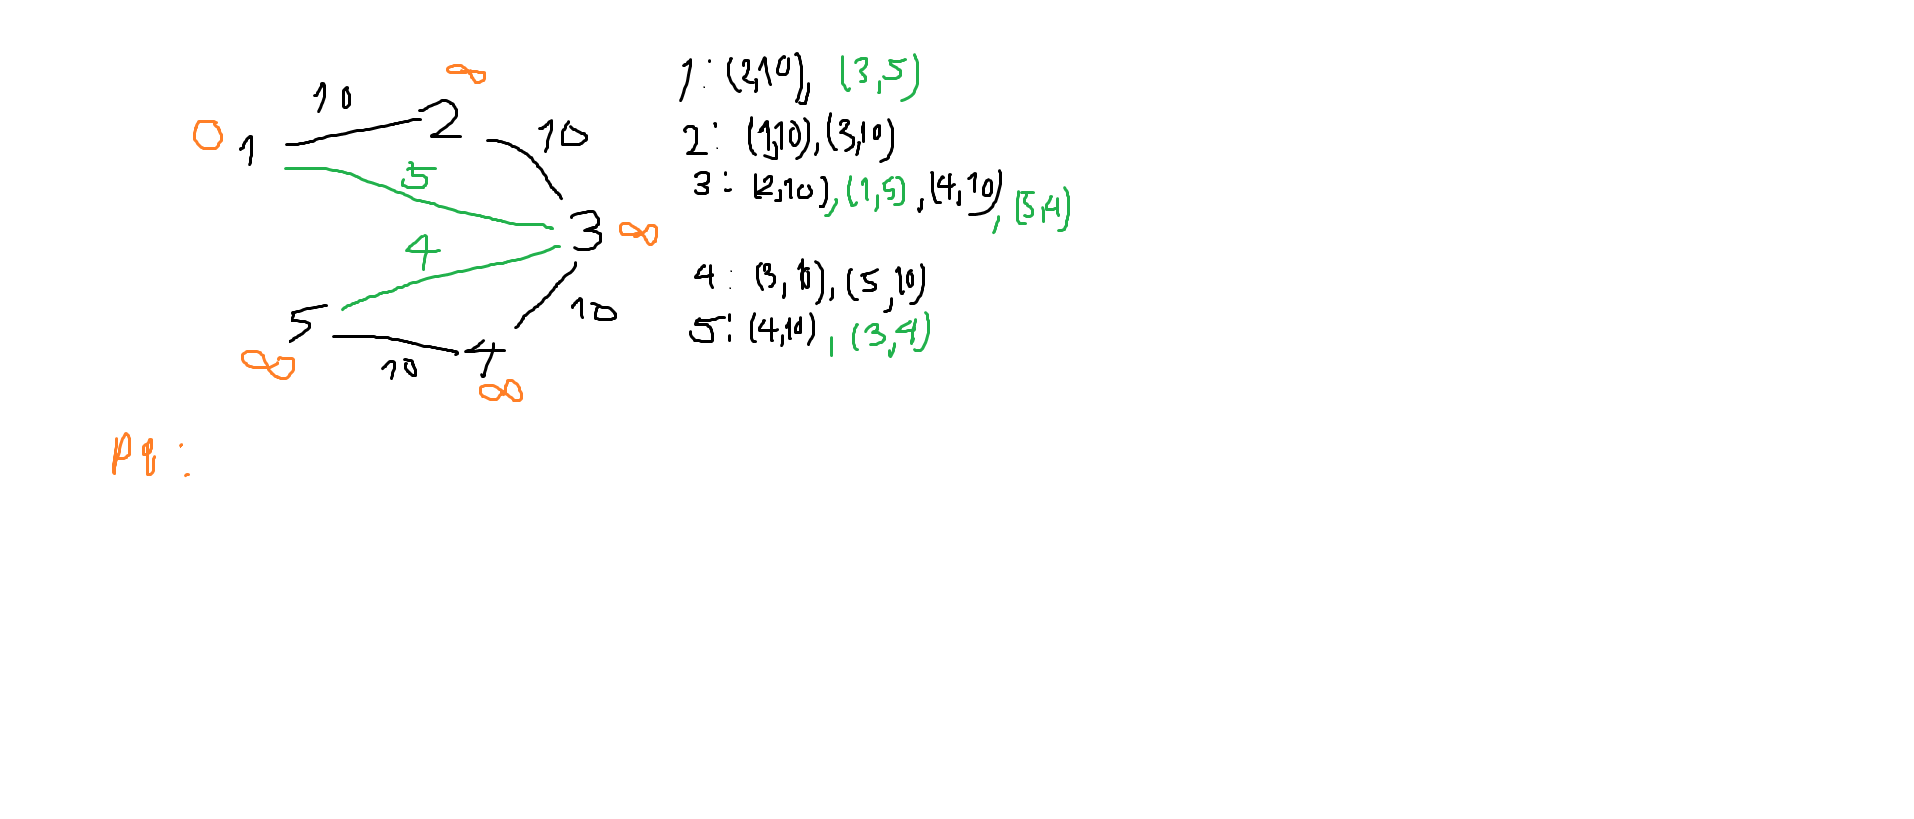 ∞
10
0 1 2 10
5
3 ∞
4
5 10
∞ 10 4
∞
1: (2,10), (3,5)
2: (1,10),(3,10)
3: (2,10),(1,5),(4,10),(5,4)
4: (3,10),(5,10)
5: (4,10),(3,4)
Pq: